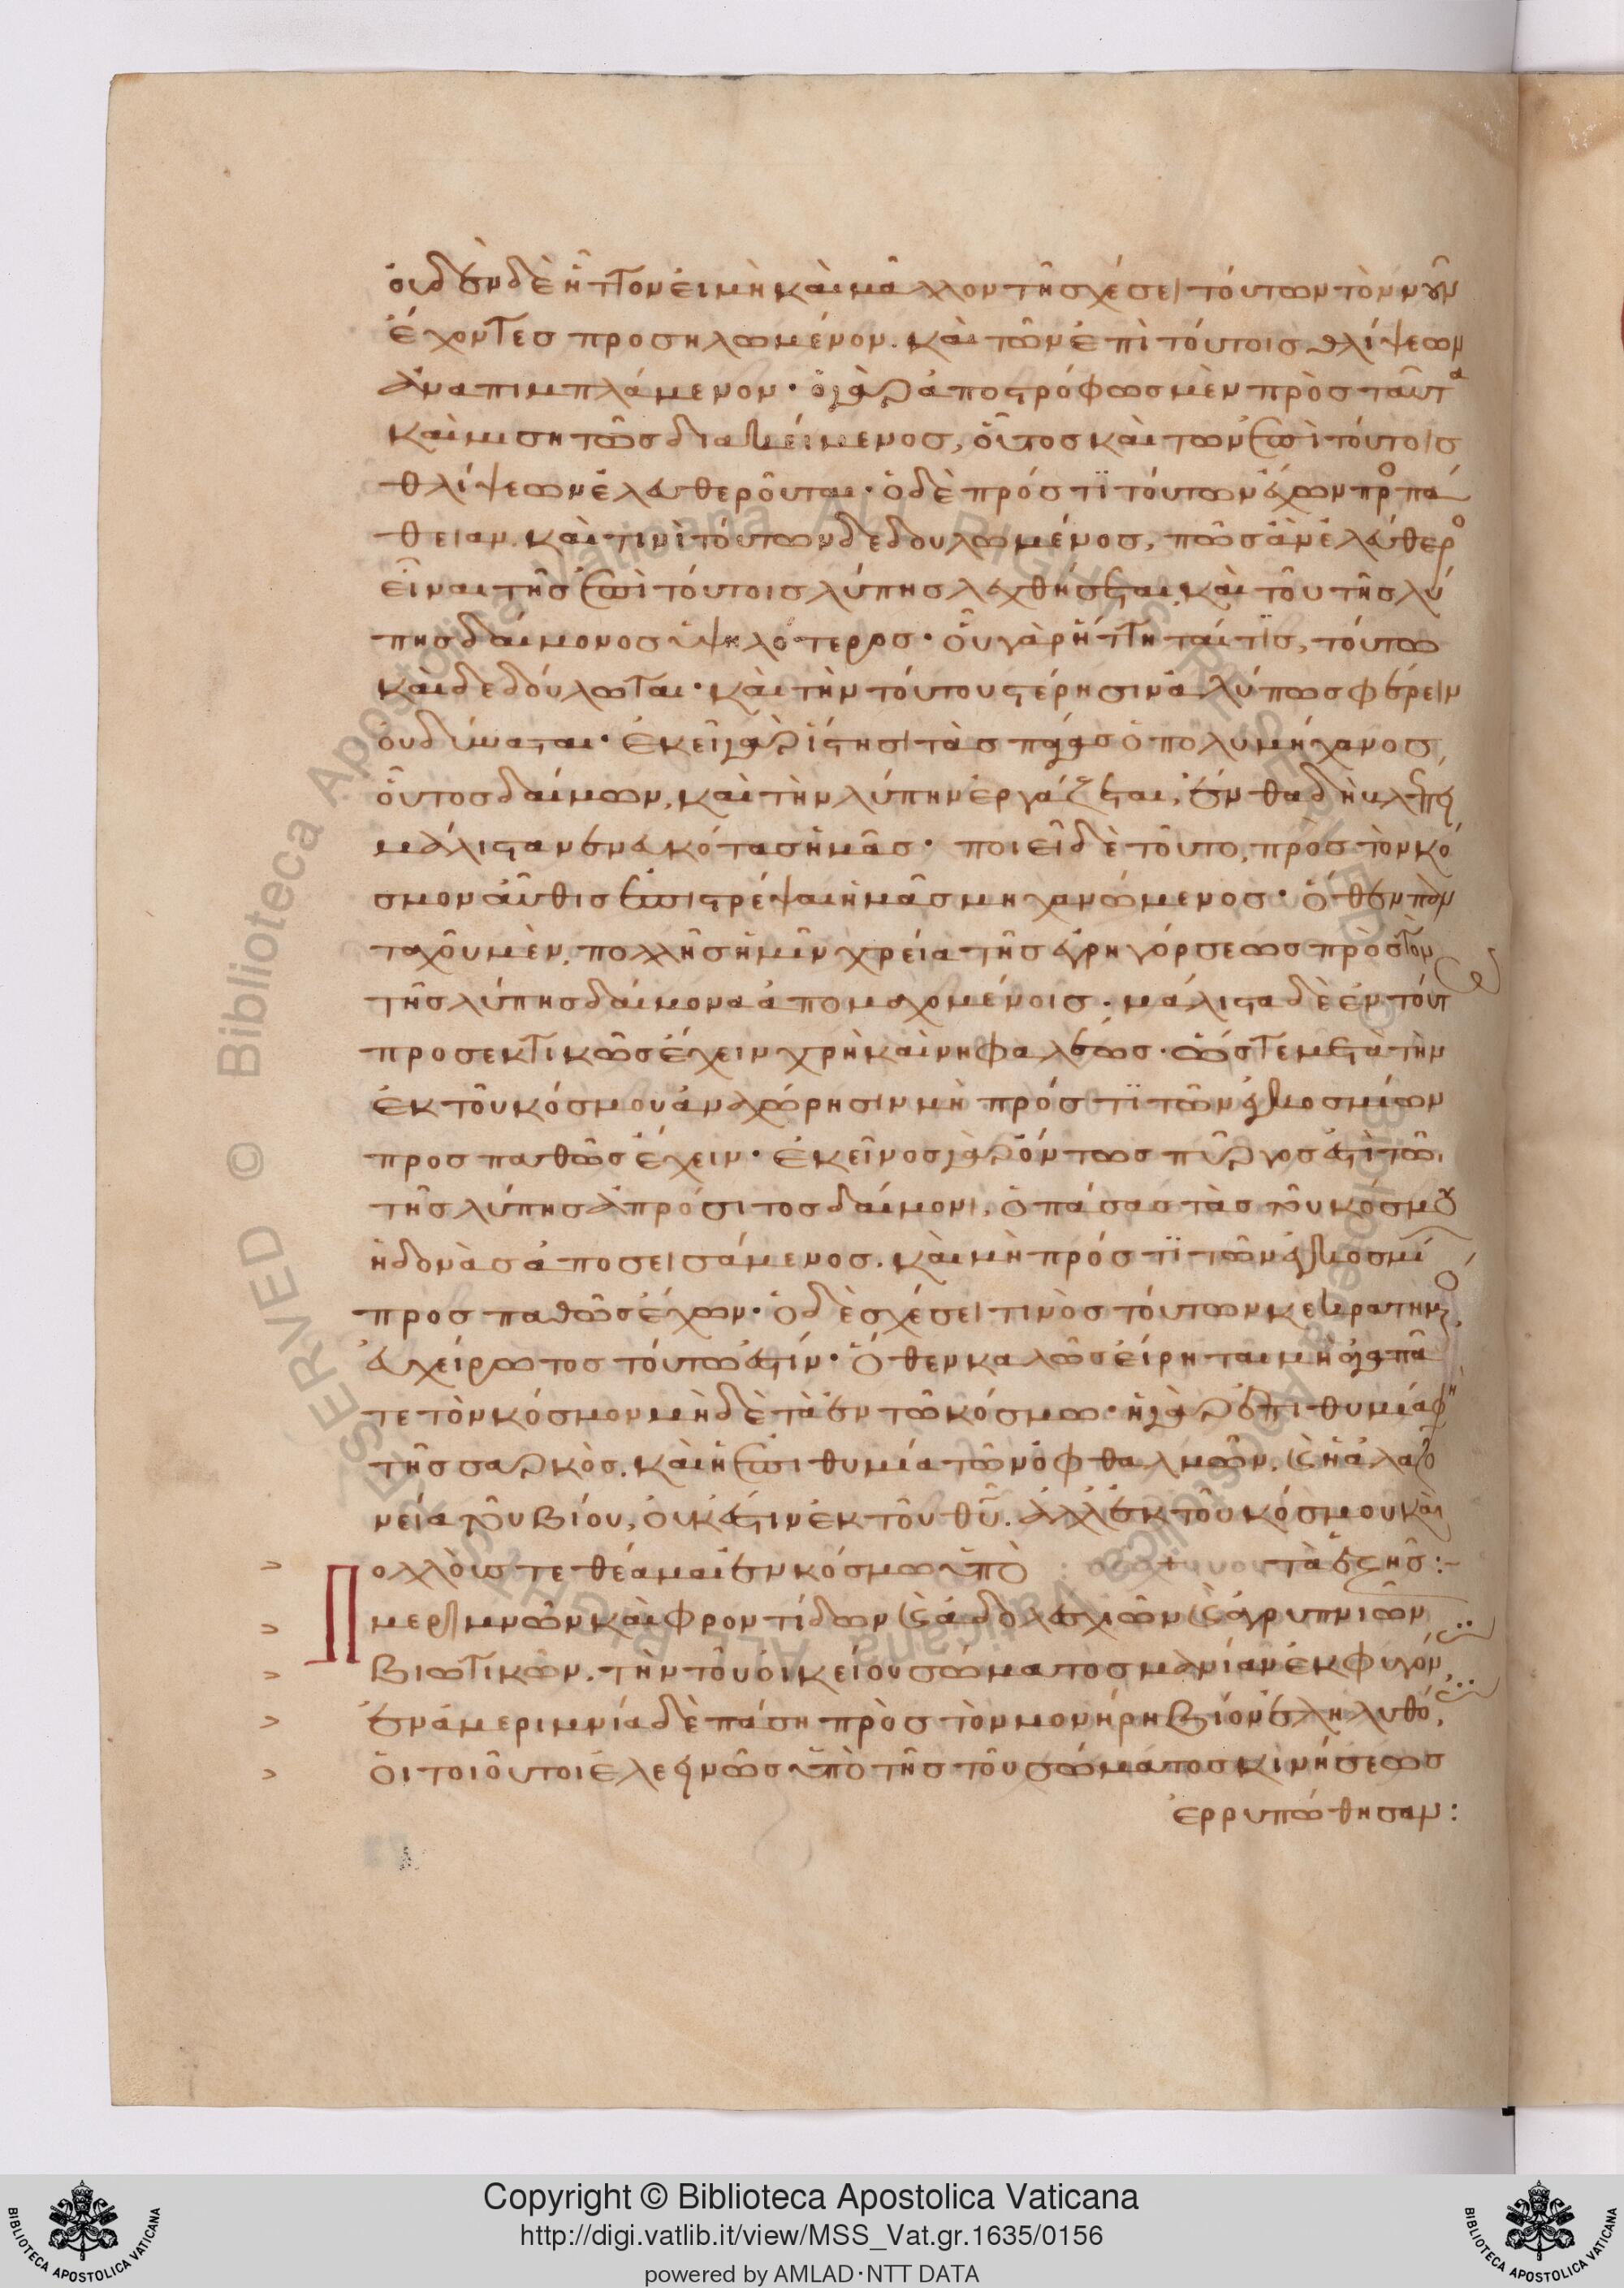 οὐδὲν δὲ ἧττον εἰ μὴ καὶ μᾶλλον τῆ σχέσει τούτων τὸν νοῦν
ἔχοντες προσηλωμένον. καὶ τῶν ἐπὶ τούτοις θλίψεων
ἀναπιμπλάμενον· ὁ γὰρ ἀποστρόφως μὲν πρὸς ταῦτα
καὶ μισητῶς διακείμενος, οὗτος καὶ τῶν ἐπὶ τούτοις
θλίψεων ἐλευθεροῦται· ὁ δὲ πρός τι τούτων ἔχων προσπά
θειαν. καὶ τινὶ τούτων δεδουλωμένος, πῶς ἂν ἐλεύθερος
εἶναι τῆς ἐπὶ τούτοις λύπης λεχθήσεται, καὶ τοῦ τῆς λύ
πης δαίμονος ὑψηλότερος· οὗ γὰρ ἥττηταί τις, τούτω
καὶ δεδούλωται· καὶ τὴν τούτου στέρησιν ἀλύπως φέρειν
οὐ δύναται· ἐκεῖ γὰρ ἵστησι τὰς πάγας ὁ πολυμήχανος
οὗτος δαίμων, καὶ τὴν λύπην ἐργάζεται, ἔνθα δὴ
μάλιστα νενευκότας ἡμᾶς· ποιεῖ δὲ τοῦτο, πρὸς τὸν κό
σμον αὖθις ἐπιστρέψαι ἡμᾶς μηχανώμενος· ὅθεν παν
ταχοῦ μὲν, πολλῆς ἡμῖν χρεία τῆς ἐγρηγόρσεως πρὸς τὸν
τῆς λύπης δαίμονα ἀπομαχομένοις. μάλιστα δὲ ἐν τούτω
προσεκτικῶς ἔχειν χρὴ καὶ νηφαλέως· ὥστε μετὰ τὴν
ἐκ τοῦ κόσμου ἀναχώρησιν μὴ πρός τι τῶν ἐγκοσμίων
προσπαθῶς ἔχειν· ἐκεῖνος γὰρ ὄντως πύργος ἐστὶ τῶ
τῆς λύπης ἀπρόσιτος δαίμονι, ὁ πάσας τὰς τοῦ κόσμου
ἡδονὰς ἀποσεισάμενος. καὶ μὴ πρός τι τῶν ἐγκοσμίων
προσπαθῶς ἔχων· ὁ δὲ σχέσει τινὸς τούτων κεκρατημένος,
εὐχείρωτος τούτω ἐστίν· ὅθεν καλῶς εἴρηται μὴ ἀγαπᾶ
τε τὸν κόσμον μηδὲ τὰ ἐν τῶ κόσμω· ἡ γὰρ ἐπιθυμία φη
τῆς σαρκὸς. καὶ ἡ ἐπιθυμία τῶν ὀφθαλμῶν. καὶ ἡ ἀλαζο
νεία τοῦ βίου, οὐκ ἔστιν ἐκ τοῦ θῦ. ἀλλ' ἐκ τοῦ κόσμου καὶ
τὰ ἑξῆς:
Πολλοὺς τεθέαμαι ἐν κόσμω ὑπὸ
μεριμνῶν καὶ φροντίδων καὶ ἀδολεσχιῶν καὶ ἀγρυπνιῶν
βιωτικῶν. τὴν τοῦ οἰκείου σώματος μανίαν ἐκφυγόντας
ἐν ἀμεριμνία δὲ πάση πρὸς τὸν μονήρη βίον ἐληλυθότες,
οἱ τοιοῦτοι ἐλεεινῶς ὑπὸ τῆς τοῦ σώματος κινήσεως
ἐρρυπώθησαν:
Copyright © Biblioteca Apostolica Vaticana
http://digi.vatlib.it/view/MSS_Vat.gr.1635/0156
powered by AMLAD·NTT DATA